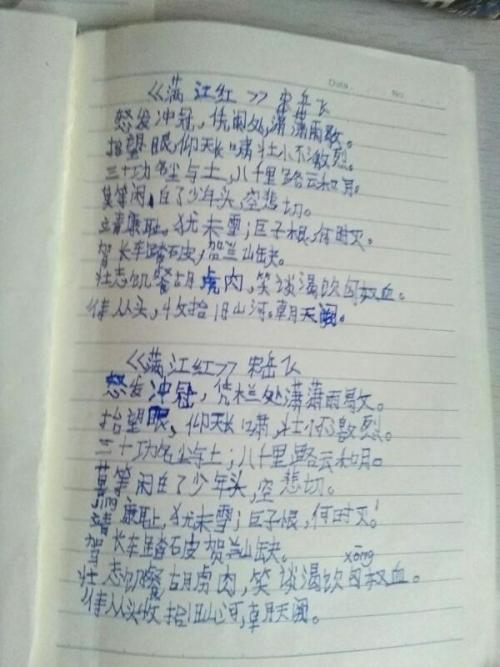 Date. No.
《满江红》 宋岳飞
怒发冲冠，凭阑处，潇潇雨歇。
抬望眼，仰天长啸，壮怀激烈。
三十功名尘与土，八千里路云和月。
莫等闲，白了少年头，空悲切。
靖康耻，犹未雪；臣子恨，何时灭。
驾长车踏破，贺兰山缺。
壮志饥餐胡虏肉，笑谈渴饮匈奴血。
待从头，收拾旧山河。朝天阙。
《满江红》 宋岳飞
怒发冲冠，凭栏处潇潇雨歇。
抬望眼，仰天长啸，壮怀激烈。
三十功名尘与土；八千里路云和月。
莫等闲白了少年头，空悲切。
jìng
靖康耻，犹未雪；臣子恨，何时灭！
驾长车踏破贺兰山缺。
xōng
壮志饥餐胡虏肉，笑谈渴饮匈奴血。
待从头收拾旧山河，朝天阙。